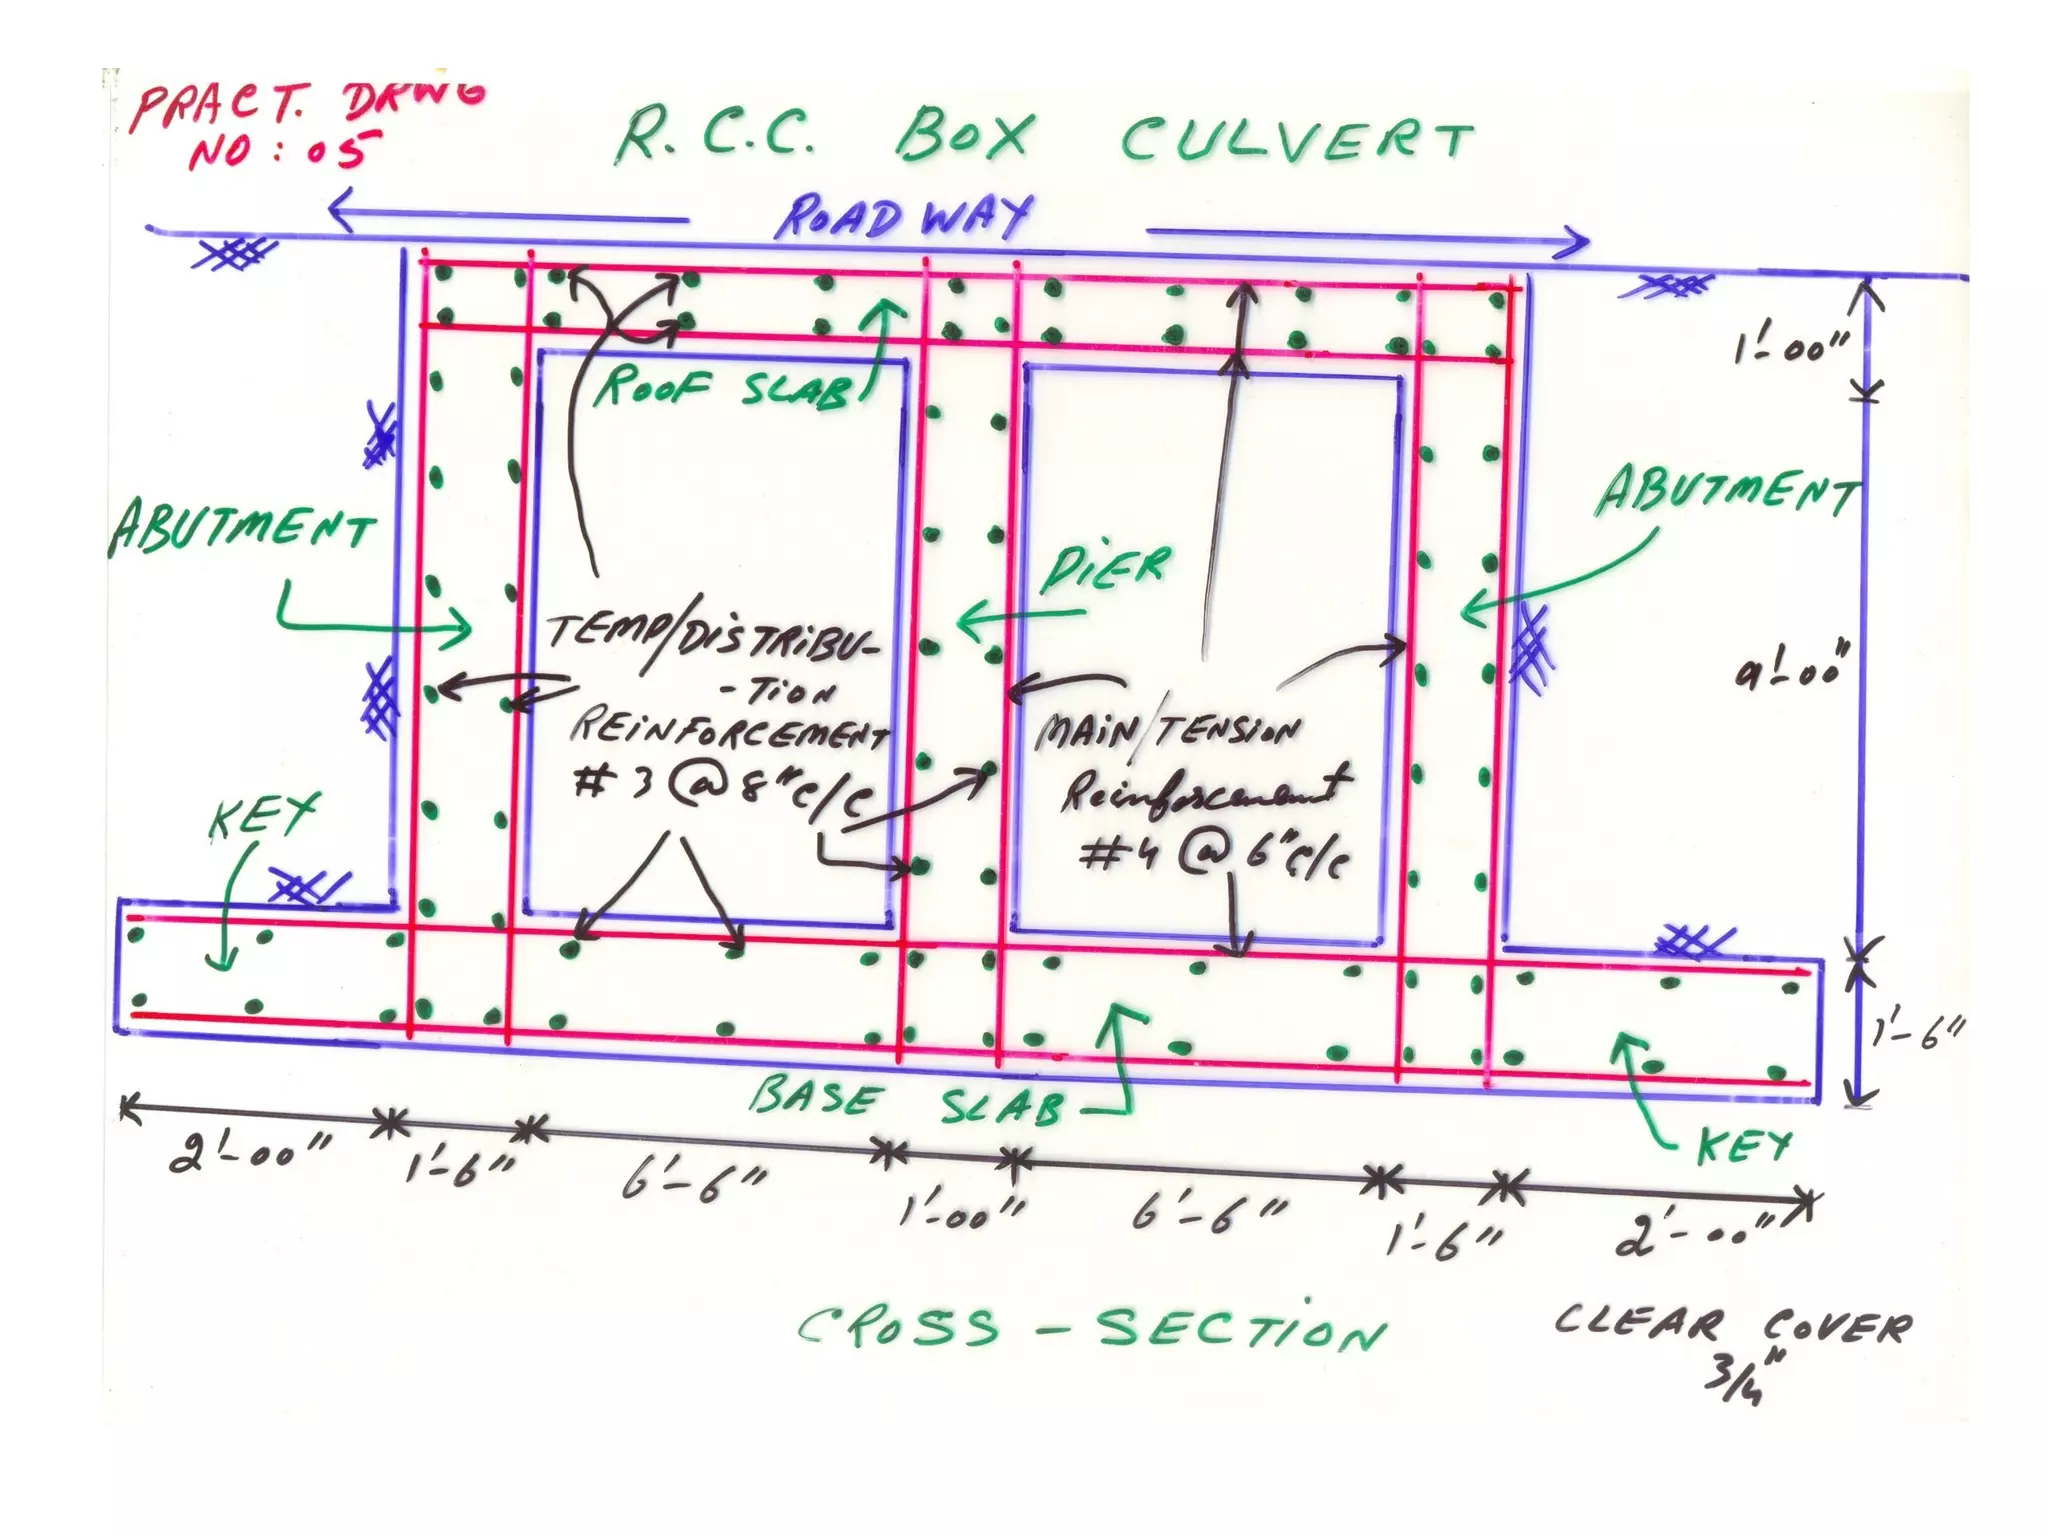 PRACT. DRWG
NO: 05
R.C.C. BOX CULVERT
ROAD WAY
1'-00"
ROOF SLAB
ABUTMENT
ABUTMENT
PIER
TEMP/DISTRIBU-
-TION
REINFORCEMENT
#3 @ 8" c/c
9'-00"
MAIN/TENSION
Reinforcement
#4 @ 6" c/c
KEY
1'-6"
BASE SLAB
KEY
2'-00" 1'-6" 6'-6" 1'-00" 6'-6" 1'-6" 2'-00"
CROSS-SECTION
CLEAR COVER
3/4"